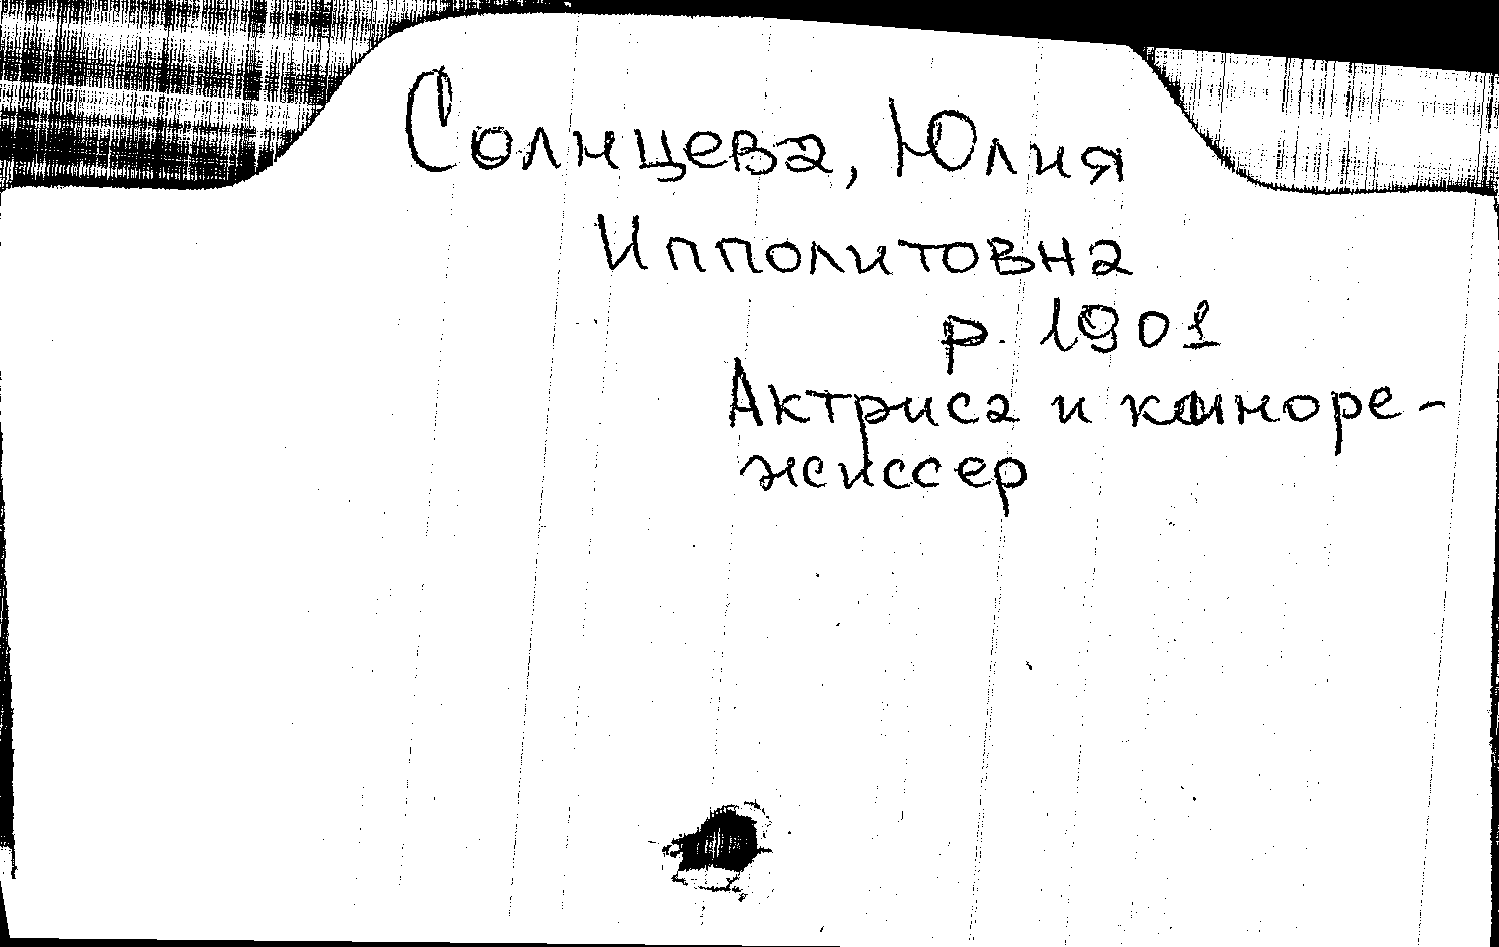 Солнцева, Юлия
Ипполитовна
р. 1901
Актриса и киноре-
жиссер